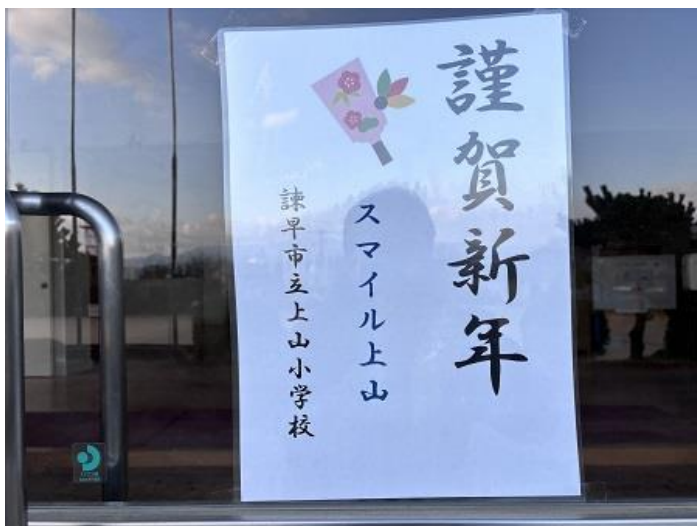 謹賀新年
スマイル上山
諫早市立上山小学校